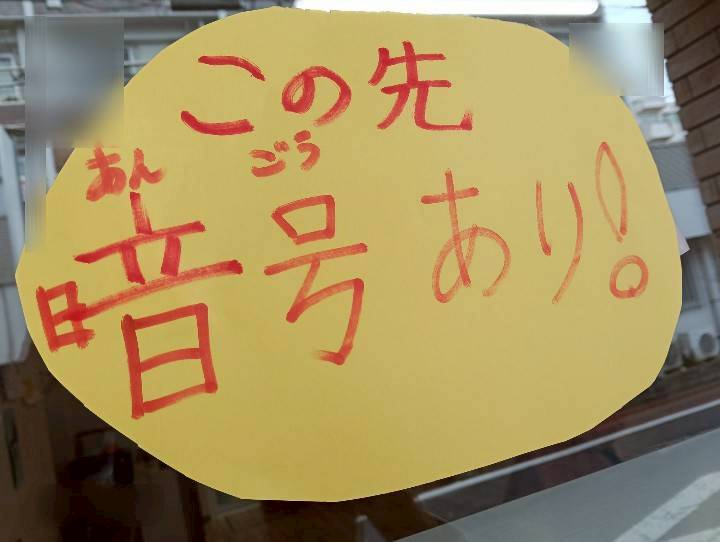 この先
あんごう
暗号あり!